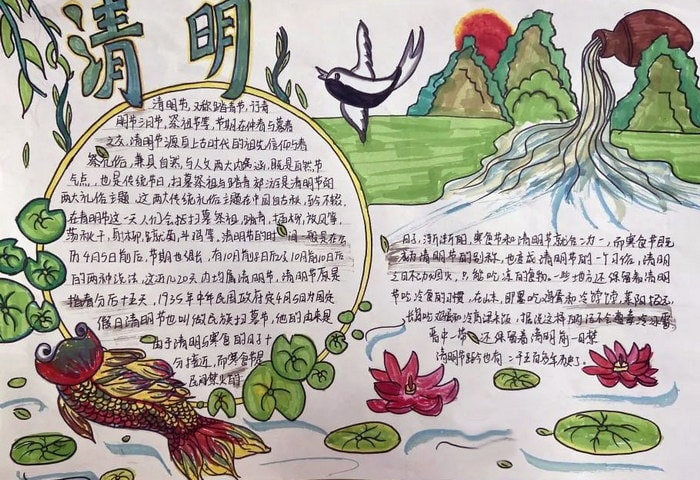 清明
清明节,又称踏青节、行青
节、祭祖节等,节期在仲春与暮春
之交。清明节源自上古时代的祖先信仰与春
祭礼俗,兼具自然与人文两大内涵,既是自然节
气点,也是传统节日,扫墓祭祖与踏青郊游是清明节的
两大礼俗主题,这两大传统礼俗主题在中国自古
在清明节这一天人们会 扫墓祭祖,踏青,插柳,放风筝,
荡秋千,射柳,蹴鞠,斗鸡等。清明节的时间一般是在公
历4月5日前后,节期
的两种说法,这近20天内均属清明节,清明节原是
指春分后十五天,1935年中华民国政府定4月5日为国定
假日清明节也叫做民族扫墓节,他的由来是
由于清明与寒食的日子十
分接近,而寒食是
民间禁火的
日子,渐渐的,寒食节和清明节就合二为一,而寒食节既
清明节的别称,也变成清明节的一个习俗,清明
只能吃凉的食物。一些地方还保留着清明
节吃冷食的习惯,在山东,即墨吃鸡蛋和冷饽饽,莱阳招远,
长岛吃鸡蛋和冷高粱米饭,据说这样的话不会遭冰雹
晋中一带还保留着清明前一日禁
清明节距今也有二千五百多年历史了。